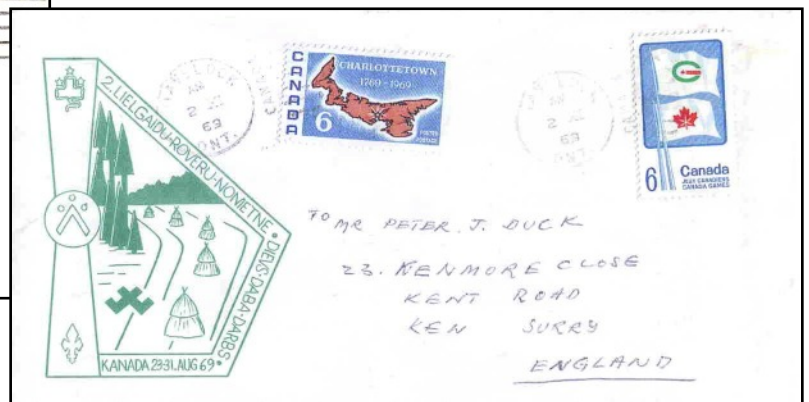 2. LIELGAIDU-ROVERU-NOMETNE • DIEVS-DABA-DARBS •
KANADA 23-31. AUG 69
AM
2
69
ONT.
CANADA
CHARLOTTETOWN
1769-1969
6
POSTES
POSTAGE
AM
2
69
ONT.
6 Canada
JEUX CANADIENS
CANADA GAMES
TO MR PETER. J. DUCK
23. KENMORE CLOSE
KENT ROAD
KEW SURRY
ENGLAND